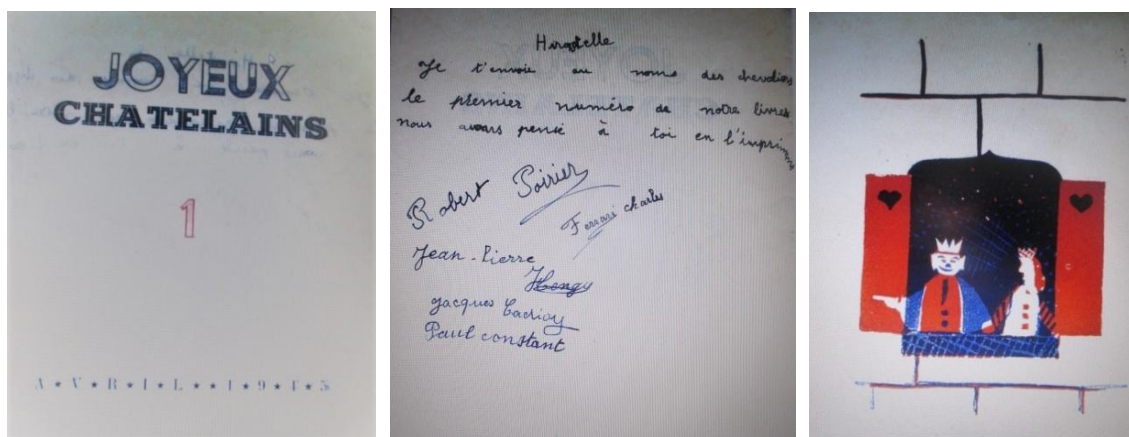 JOYEUX
CHATELAINS
1
A★V★R★I★L★★1★9★4★5
Hirondelle
Je t'envoie au noms des chevaliers
le plemier numéro de notre livres
nous avons pensé à toi en l'imprimant
Robert Poirier
Ferrari charles
Jean-Pierre
Hengy
Jacques
Paul constant